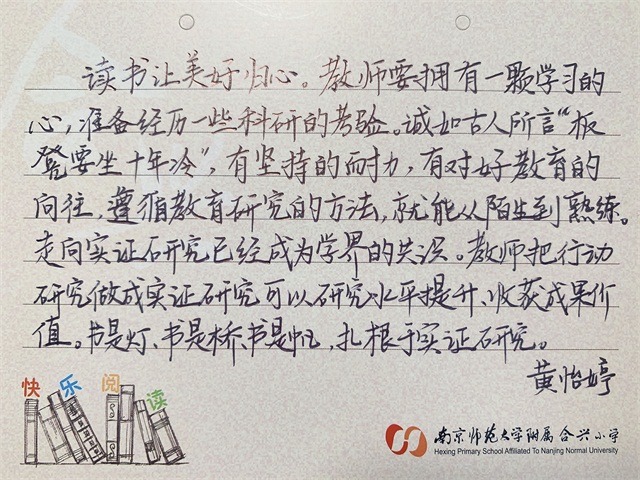 读书让美好归心。教师要拥有一颗学习的
心，准备经历一些科研的考验。诚如古人所言“板
凳要坐十年冷”，有坚持的耐力，有对好教育的
向往，遵循教育研究的方法，就能从陌生到熟练。
走向实证研究已经成为学界的共识。教师把行动
研究做成实证研究可以研究水平提升、收获成果价
值。书是灯、书是桥、书是帆，扎根于实证研究。
黄怡婷
快乐阅读
南京师范大学附属合兴小学
Hexing Primary School Affiliated To Nanjing Normal University